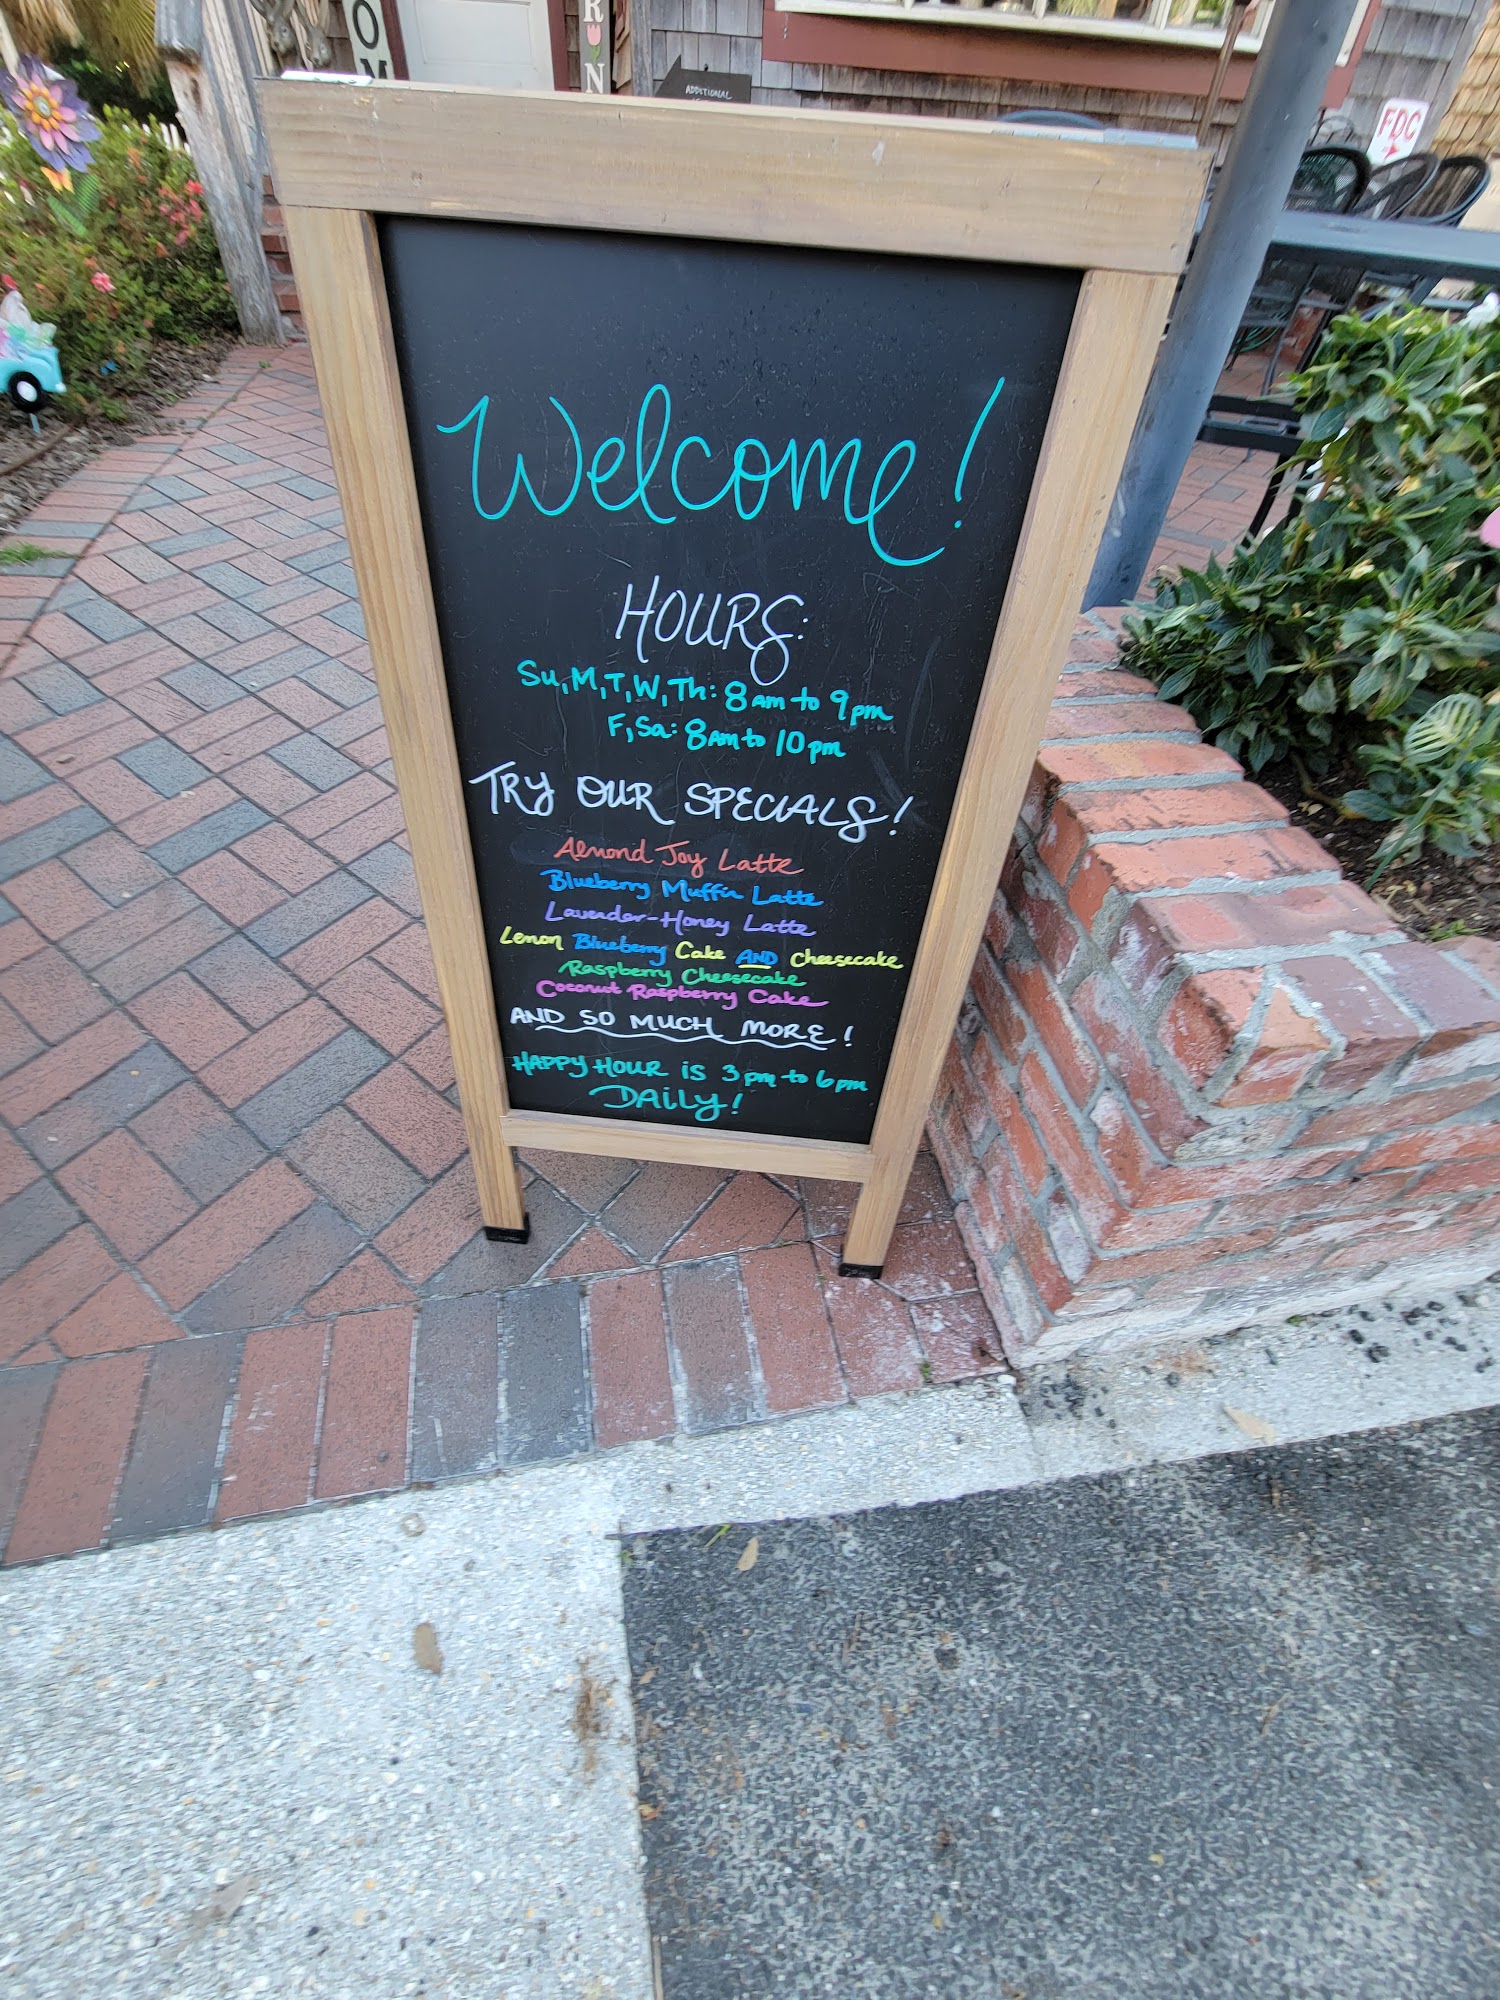 ADDITIONAL
FDC
Welcome!
HOURS:
Su, M, T, W, Th: 8am to 9pm
F, Sa: 8am to 10pm
TRY OUR SPECIALS!
Almond Joy Latte
Blueberry Muffin Latte
Lavender-Honey Latte
Lemon Blueberry Cake AND Cheesecake
Raspberry Cheesecake
Coconut Raspberry Cake
AND SO MUCH MORE!
HAPPY HOUR is 3pm to 6pm
DAiLY!